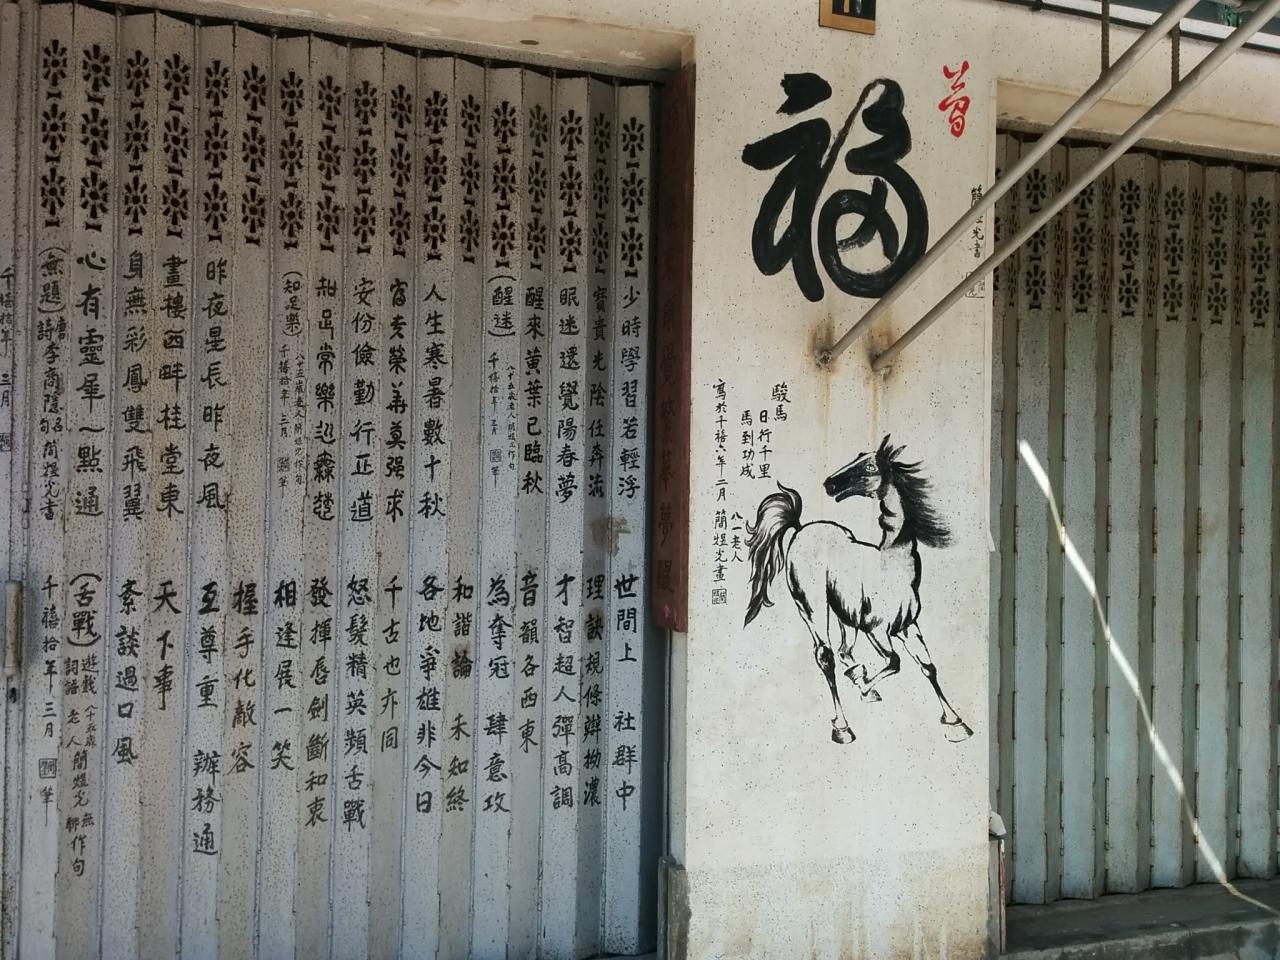 福
簡煌光書
駿馬
日行千里
馬到功成
八一老人
寫於千禧六年二月 簡煌光畫
少時學習若輕浮
寶貴光陰任奔流
眠迷還覺陽春夢
醒來黃葉已臨秋
(醒迷)
千禧拾年 三月
筆
人生寒暑數十秋
富貴榮華莫强求
安份儉勤行正道
知足常樂
(知足樂)
八十五歲老人簡煌光作句
千禧拾年 二月
筆
昨夜星辰昨夜風
畫樓西畔桂堂東
身無彩鳳雙飛翼
心有靈犀一點通
(無題)
唐
詩李商隱名句簡煌光書
千禧拾年 三月
世間上 社群中
理訣規條辯拗濃
才智超人彈高調
音韻各西東
為奪冠 肆意攻
和諧論 未知終
各地爭雄非今日
千古也亦同
怒髮精英頻舌戰
發揮唇劍斷和衷
相逢展一笑
握手化敵容
互尊重 辦務通
天下事
紊談過口風
(舌戰)
遊戲
詞語
八十五歲
老人簡煌光
無聊作句
千禧拾年三月
筆